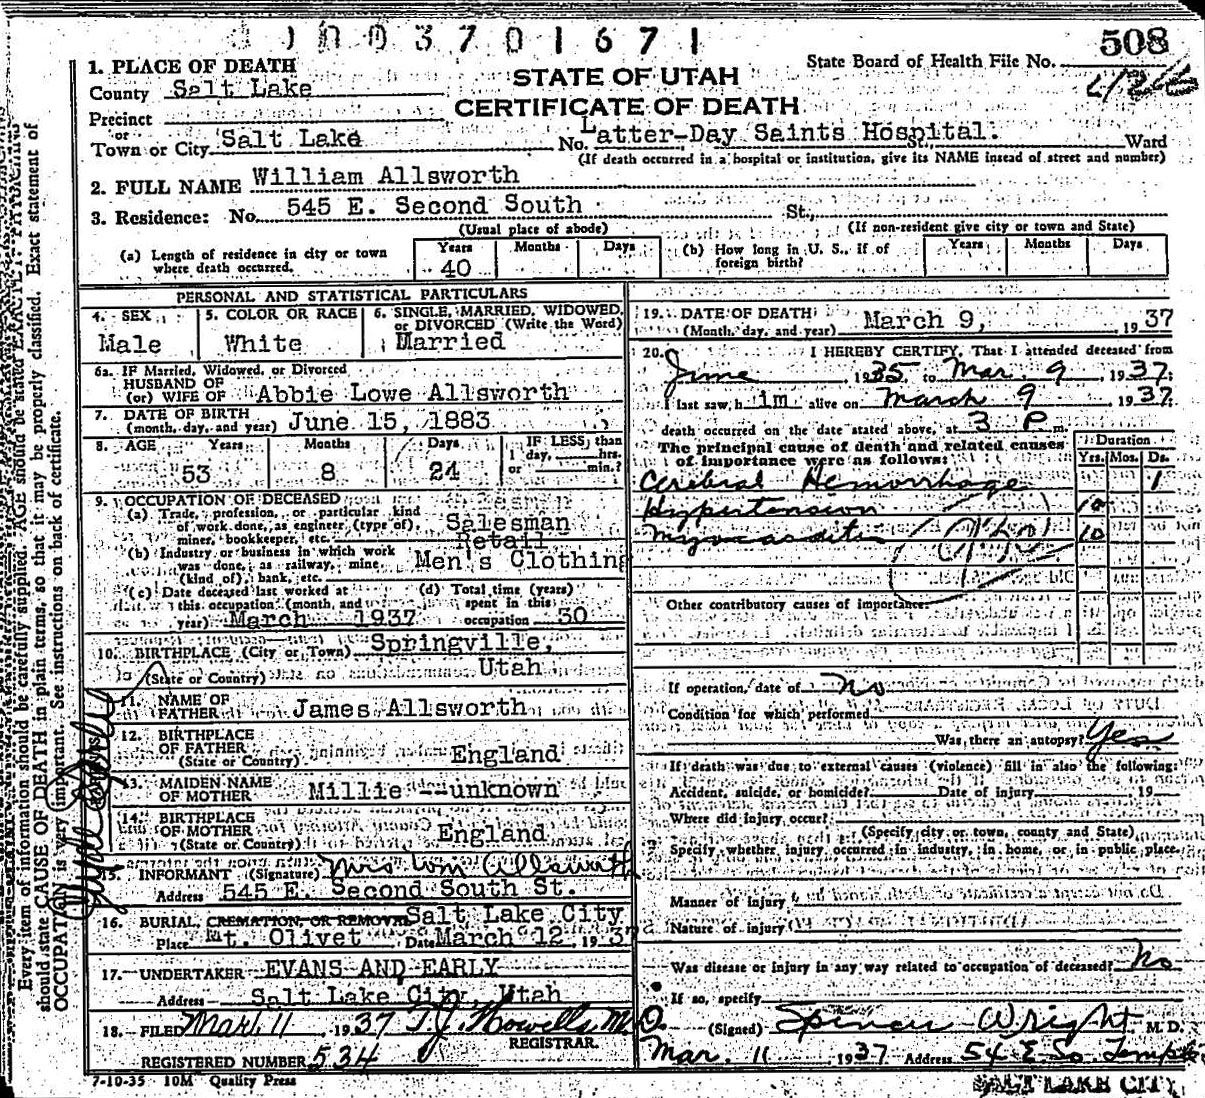 3701671
508
STATE OF UTAH
CERTIFICATE OF DEATH
State Board of Health File No.
1. PLACE OF DEATH
County Salt Lake
Precinct
or
Town or City Salt Lake No. Latter-Day Saints Hospital. St., Ward
(If death occurred in a hospital or institution, give its NAME instead of street and number)
2. FULL NAME William Allsworth
3. Residence: No. 545 E. Second South St.,
(Usual place of abode) (If non-resident give city or town and State)
(a) Length of residence in city or town where death occurred. Years 40 Months Days (b) How long in U. S., if of foreign birth? Years Months Days
PERSONAL AND STATISTICAL PARTICULARS
4. SEX Male
5. COLOR OR RACE White
6. SINGLE, MARRIED, WIDOWED, or DIVORCED (Write the Word) Married
6a. IF Married, Widowed, or Divorced
HUSBAND OF
(or) WIFE OF Abbie Lowe Allsworth
7. DATE OF BIRTH
(month, day, and year) June 15, 1883
8. AGE Years 53 Months 8 Days 24 IF LESS than 1 day, hrs. or min.?
9. OCCUPATION OF DECEASED
(a) Trade, profession, or particular kind of work done, as engineer (type of), miner, bookkeeper, etc. Salesman
(b) Industry or business in which work was done, as railway, mine (kind of), bank, etc. Retail Men's Clothing
(c) Date deceased last worked at this occupation (month, and year) March 1937
(d) Total time (years) spent in this occupation 30
10. BIRTHPLACE (City or Town) Springville,
(State or Country) Utah
11. NAME OF FATHER James Allsworth
12. BIRTHPLACE OF FATHER (State or Country) England
13. MAIDEN NAME OF MOTHER Millie --unknown
14. BIRTHPLACE OF MOTHER (State or Country) England
15. INFORMANT (Signature) Mrs Wm Allsworth
Address 545 E. Second South St.
16. BURIAL, CREMATION, OR REMOVAL Salt Lake City
Place Mt. Olivet Date March 12, 1937
17. UNDERTAKER EVANS AND EARLY
Address Salt Lake City, Utah
18. FILED Mar. 11, 1937 T. J. Howells M. D.
REGISTRAR.
REGISTERED NUMBER 534
7-10-35 10M Quality Press
19. DATE OF DEATH
(Month, day, and year) March 9, 1937
20. I HEREBY CERTIFY, That I attended deceased from
June, 1935, to Mar. 9, 1937;
I last saw h im alive on March 9 1937
death occurred on the date stated above, at 3 P m.
The principal cause of death and related causes of importance were as follows:
Duration
Yrs. Mos. Ds.
Cerebral Hemorrhage 1
Hypertension 10
Myocarditis 10
Other contributory causes of importance:
If operation, date of No
Condition for which performed
Was there an autopsy? Yes
If death was due to external causes (violence) fill in also the following:
Accident, suicide, or homicide? Date of injury 19
Where did injury occur?
(Specify city or town, county and State)
Specify whether injury occurred in industry, in home, or in public place.
Manner of injury
Nature of injury
Was disease or injury in any way related to occupation of deceased? No
If so, specify
(Signed) Spencer Wright M. D.
Mar. 11 1937 Address 54 E So. Temple
SALT LAKE CITY
Every item of information should be carefully supplied. AGE should be stated EXACTLY.
should state CAUSE OF DEATH in plain terms, so that it may be properly classified. Exact statement of
OCCUPATION is very important. See instructions on back of certificate.